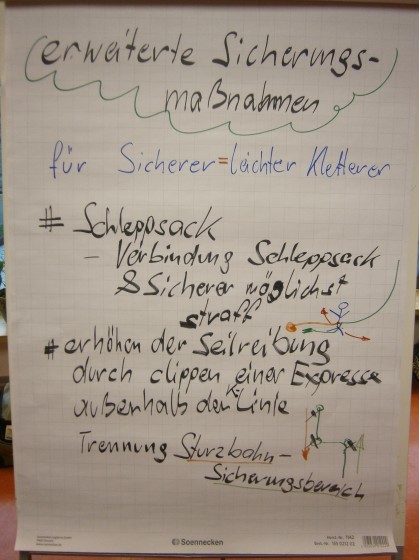 erweiterte Sicherungs-
maßnahmen
für Sicherer = leichter Kletterer
# Schleppsack
- Verbindung Schleppsack
& Sicherer möglichst
straff
# erhöhen der Seilreibung
durch clippen einer Expresse
außerhalb der Kl. Linie
Trennung Sturzbahn-
Sicherungsbereich
Soennecken